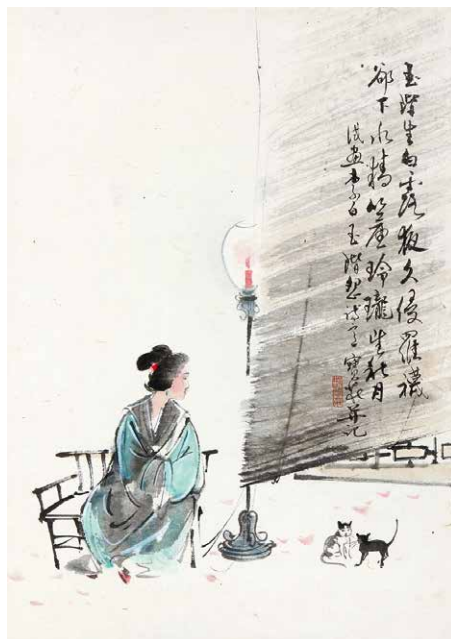 玉階生白露夜久侵羅襪
卻下水精簾玲瓏望秋月
畫李白玉階怨詩意